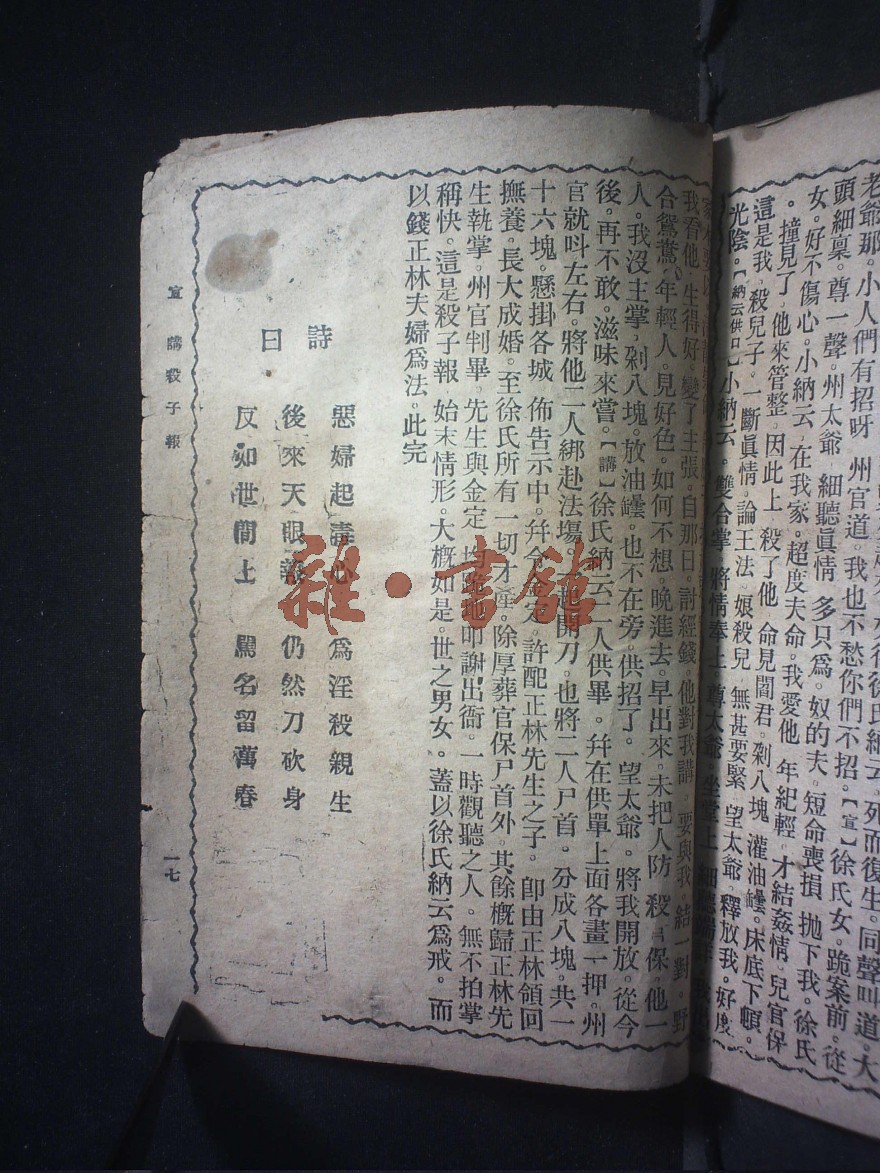 老爺那。小人們有招呀 州官道。我也不愁你們不招。【宣】徐氏女。跪案前。從
頭細稟。尊一聲。州太爺 細聽眞情 多只爲。奴的夫。短命喪損 抛下我。徐氏
女。好不傷心。小納云。在我家。超度夫命。我愛他 年紀輕。才結姦情。兒官保
。撞見了。他來管整。因此上 殺了他 命見閻君。剁八塊 灌油罎。床底下頓。
這是我。殺兒子。一斷眞情。論王法 娘殺兒 無甚要緊 望太爺。釋放我。好度
光陰。【納云供口】小納云。雙合掌 將情奉上 尊太爺。坐堂上
我看他 生得好。變了主張。自那日。討經錢。他對我講。要與我。結一對。野
合鴛鴦。年輕人。見好色。如何不想。晚進去。早出來。未把人防 殺官保。他一
人。我沒主掌。剁八塊。放油罎。也不在旁。供招了。望太爺。將我開放。從今
後。再不敢。滋味來嘗。【講】徐氏納云二人供畢。幷在供單上面各畫一押。州
官就呌左右。將他二人綁赴法塲。一起開刀。也將二人尸首。分成八塊。共一
十六塊。懸掛各城 佈告示中。幷令金定。許配正林先生之子。卽由正林領回
撫養。長大成婚。至徐氏所有一切才產。除厚葬官保尸首外。其餘槪歸正林先
生執掌。州官判畢。先生與金定。均跪地叩謝出衙。一時觀聽之人。無不拍掌
稱快。這是殺子報 始末情形。大槪如是。世之男女。蓋以徐氏納云爲戒。而
以錢正林夫婦爲法。此完
詩
曰
惡婦起毒心 爲淫殺親生
後來天眼報 仍然刀砍身
反如世間上 罵名留萬春
宣講殺子報
一七
雜·書館